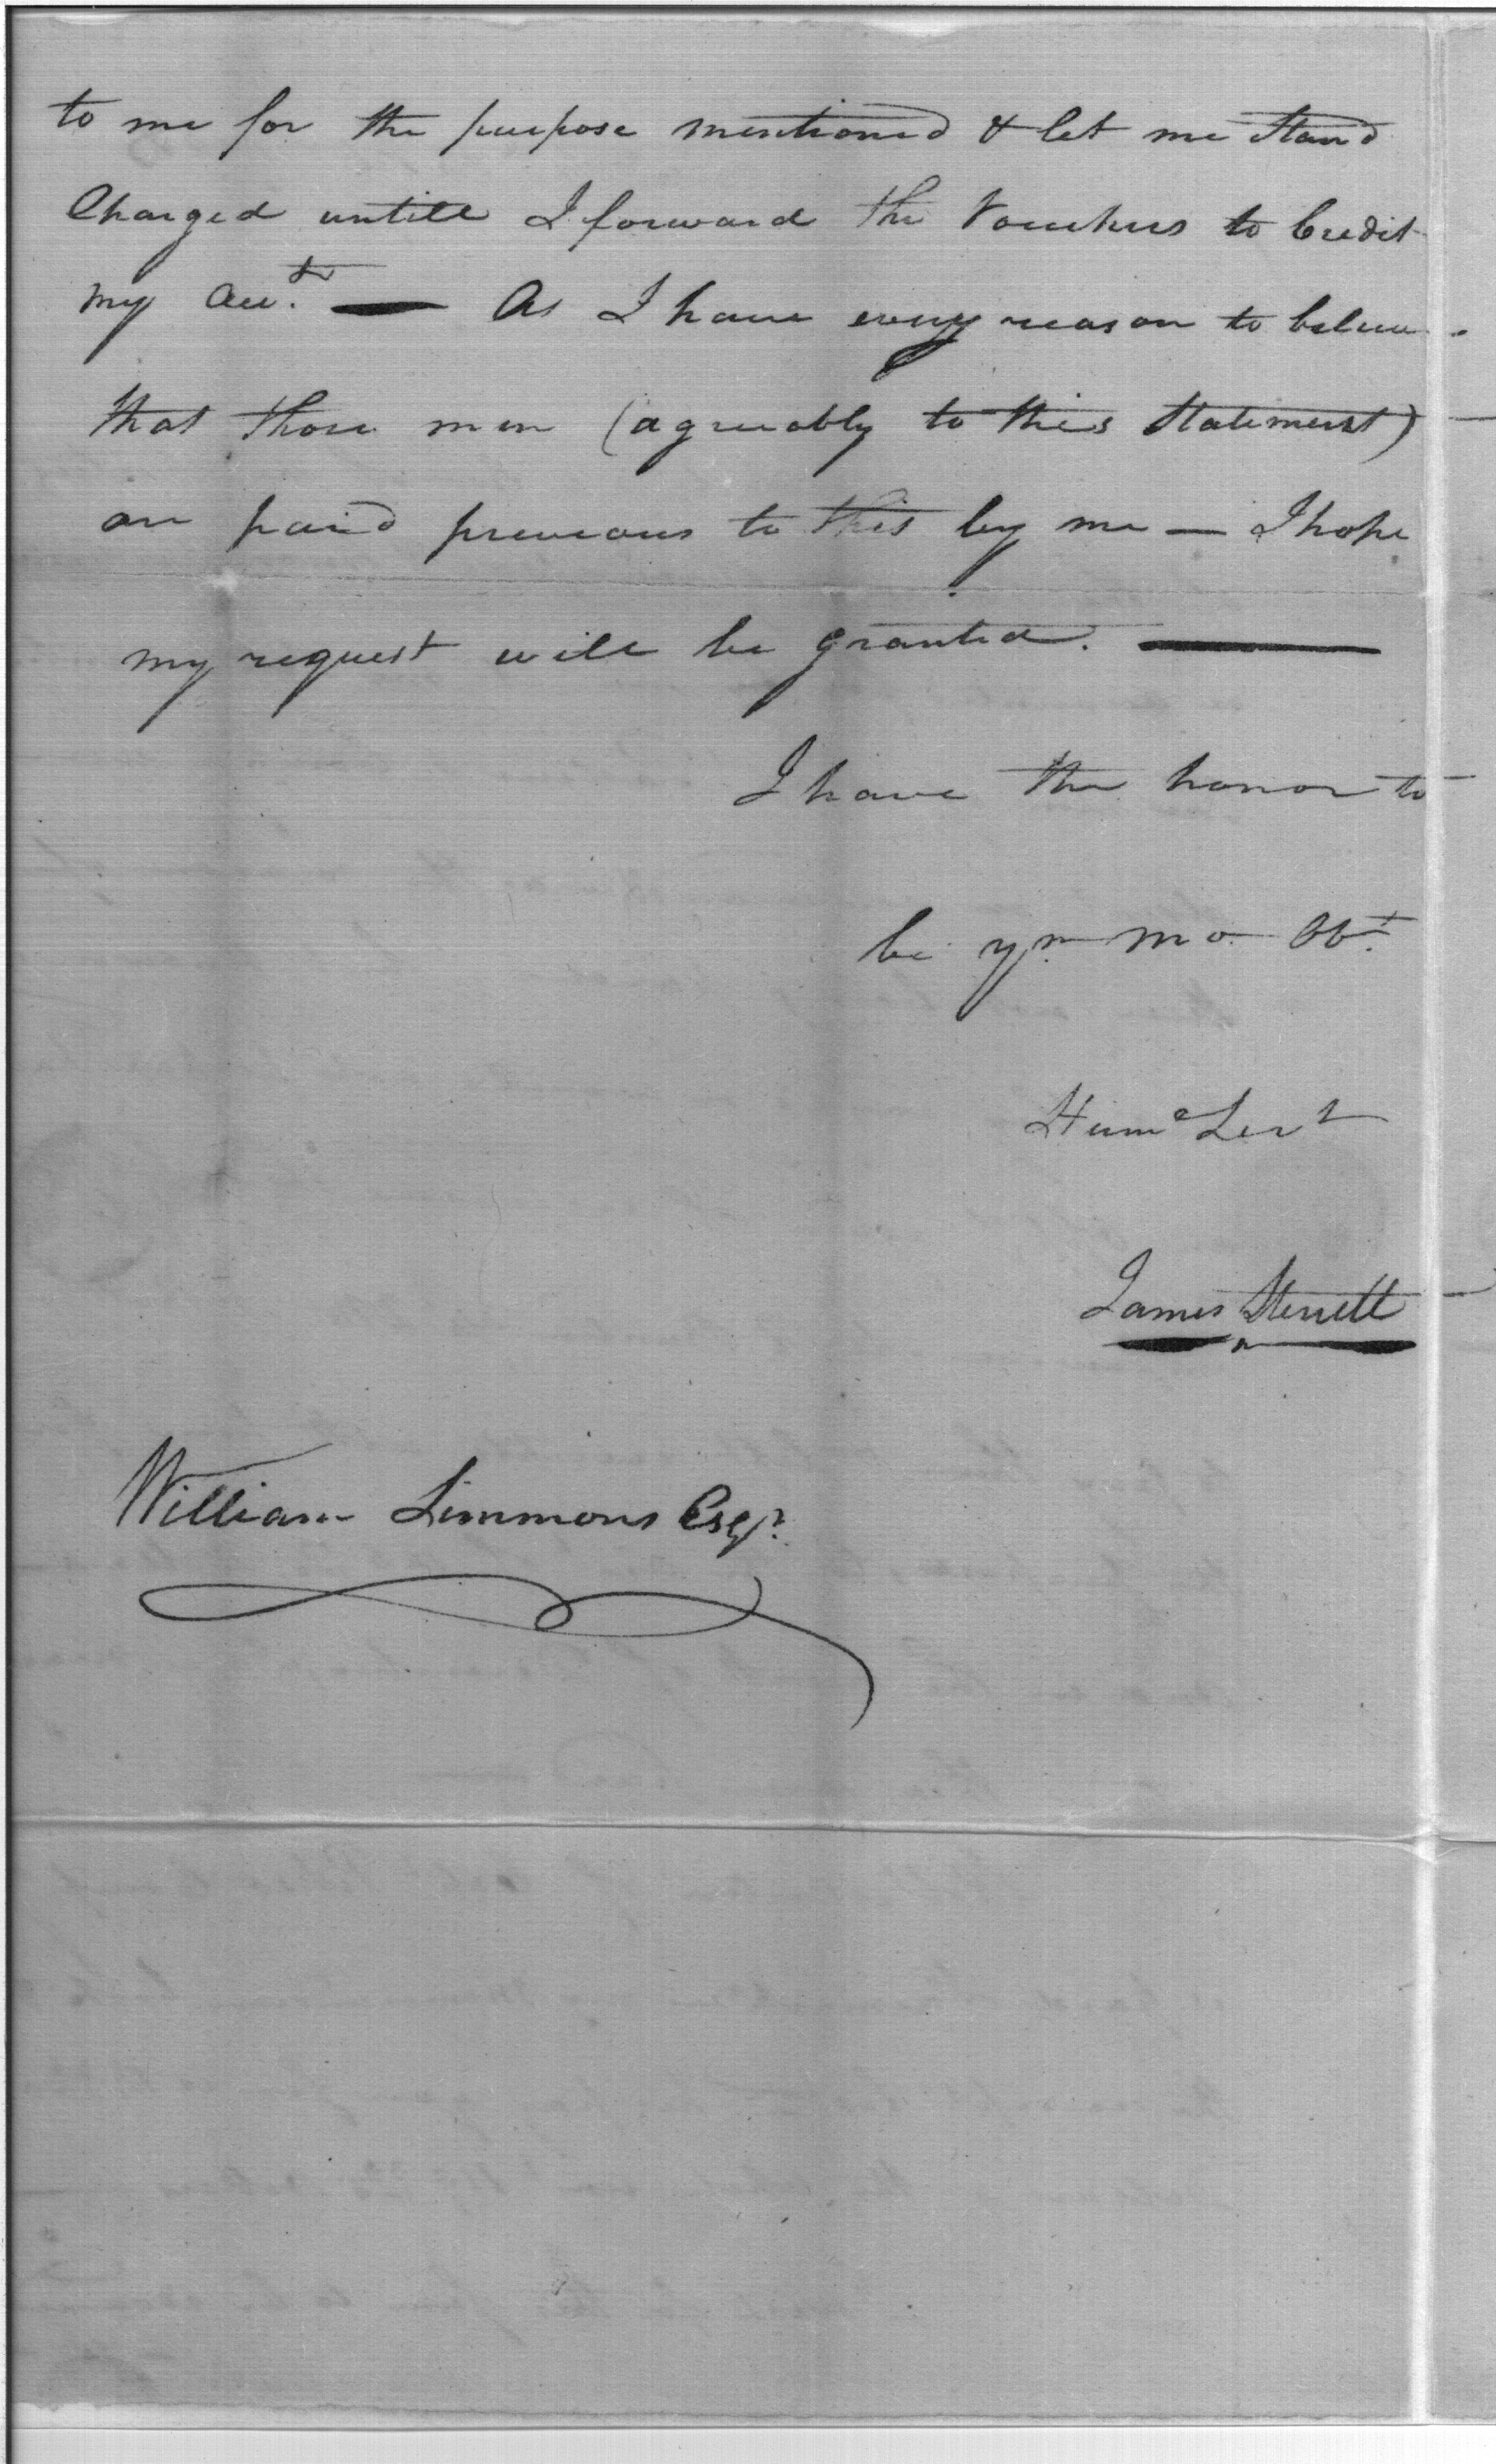 to me for the purpose mentioned & let me Stand
Charged untill I forward the Vouchers to Credit
my Acct. — As I have every reason to believe
that those men (agreeably to this Statement)
are paid previous to this by me — I hope
my request will be granted. —
I have the honor to
be yr. Mo Obt.
Hume Servt
James Sterrett
William Simmons Esqr.